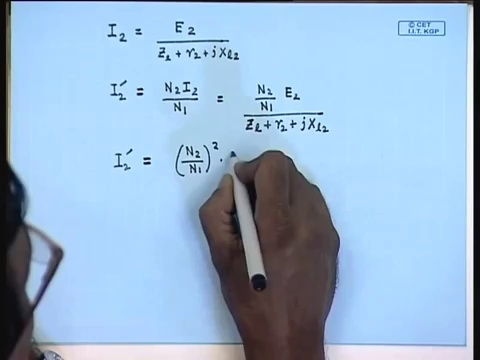 © CET
I.I.T. KGP
I₂ = E₂ / (Z₂ + r₂ + jXl₂)
I₂′ = N₂I₂ / N₁ = (N₂/N₁) E₂ / (Zl + r₂ + jXl₂)
I₂′ = (N₂/N₁)² ·